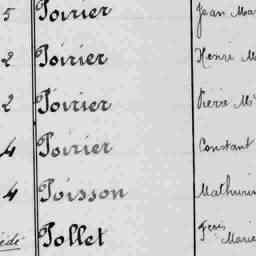 5 Poirier Jean Ma
2 Poirier Henri M
2 Poirier Pierre M
4 Poirier Constant
4 Poisson Mathurin
Pollet Frçis Marie